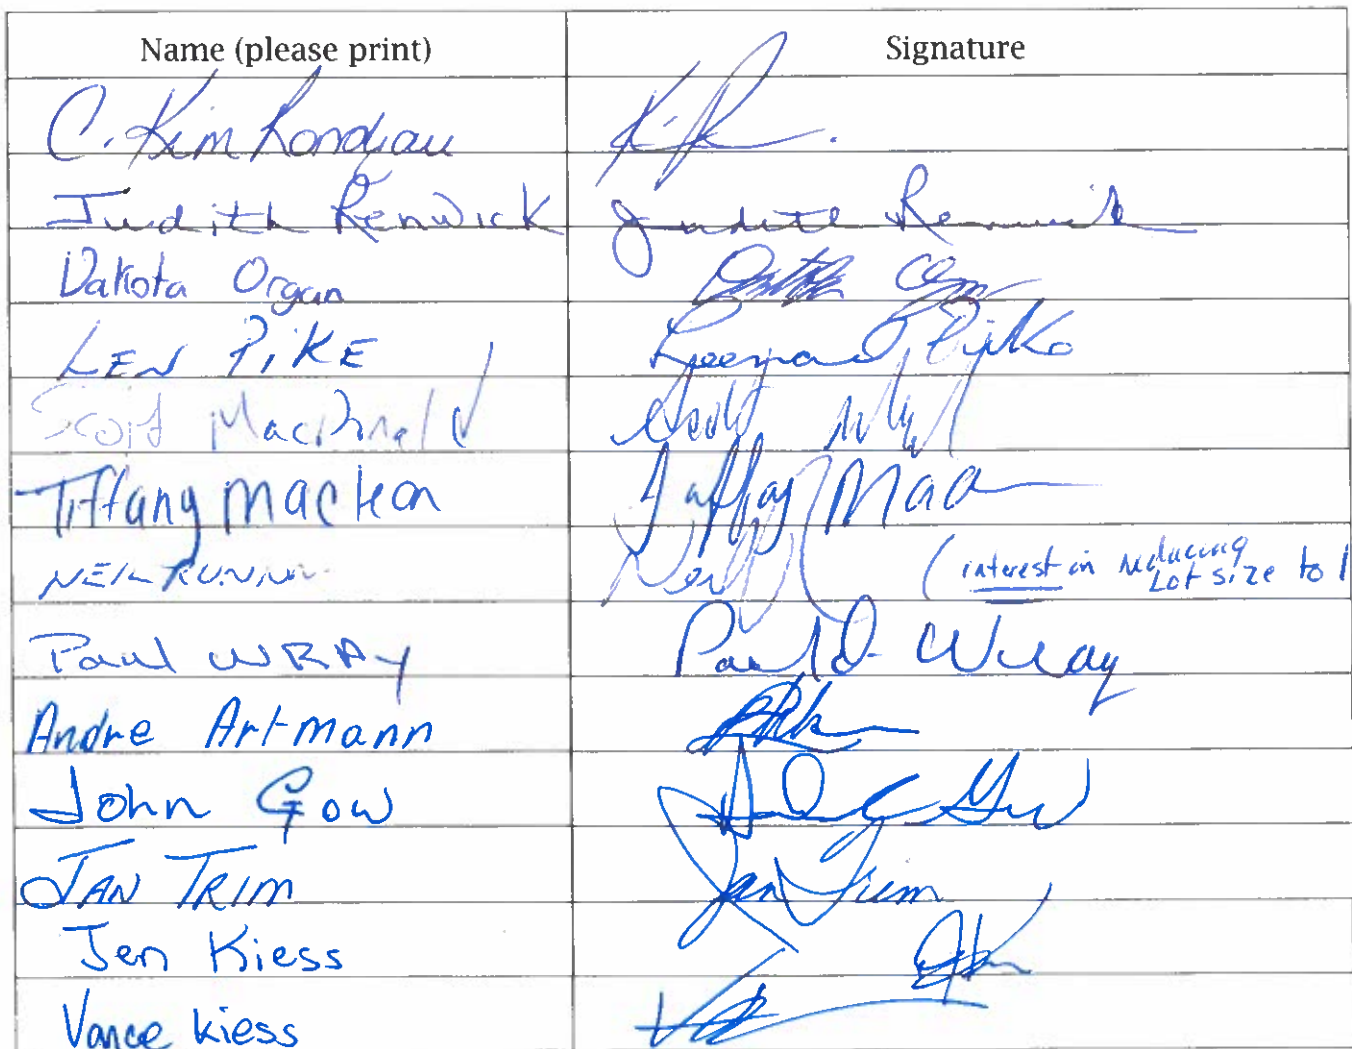 Name (please print) Signature
C. Kim Rondeau
Judith Renwick Judith Renwick
Dakota Organ
LEN PIKE Leonard Pike
Scott MacDonald Scott
Tiffany MacLean Tiffany Mac
NEIL Neil (interest in reducing
Lot size to 1
Paul WRAY Paul D. Wray
Andre Artmann
John Gow
JAN TRIM Jan Trim
Jen Kiess
Vance Kiess